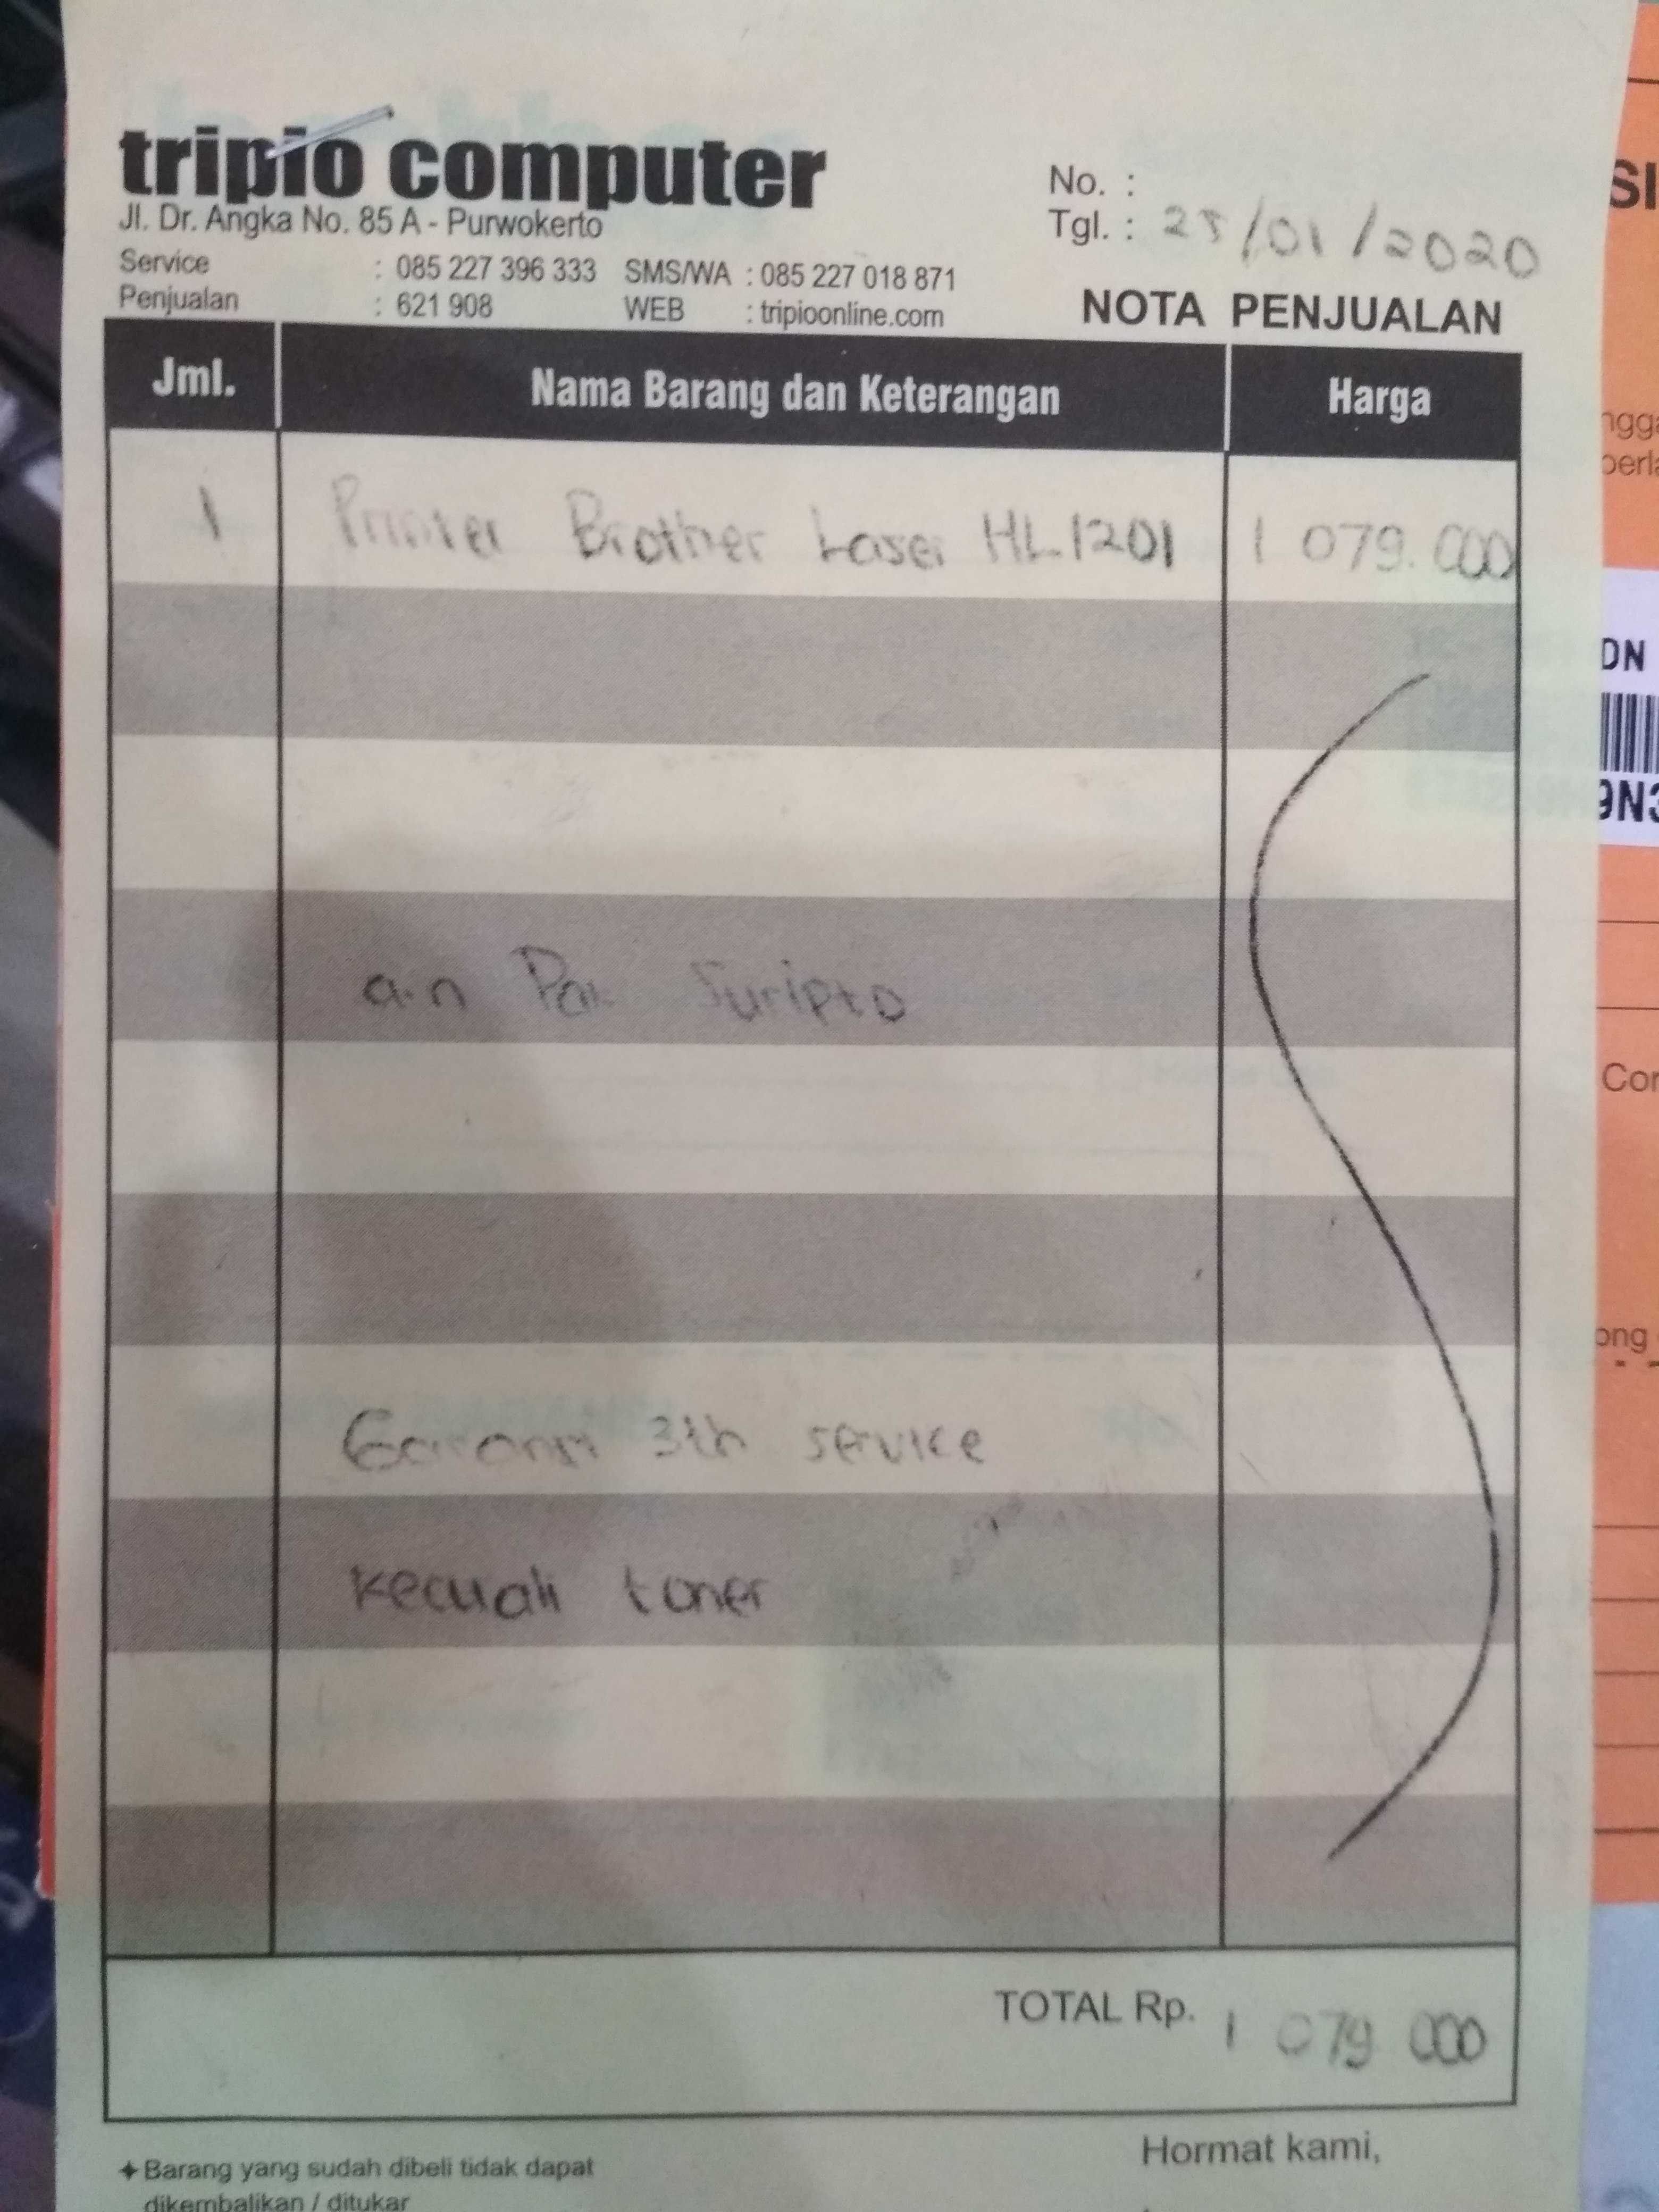 tripio computer
Jl. Dr. Angka No. 85 A - Purwokerto
Service : 085 227 396 333 SMS/WA : 085 227 018 871
Penjualan : 621 908 WEB : tripioonline.com
No. :
Tgl. : 25/01/2020
NOTA PENJUALAN
Jml. Nama Barang dan Keterangan Harga
1 Printer Brother Laser HL1201 1 079.000
a.n Pak Suripto
Garansi 3th service
kecuali toner
TOTAL Rp. 1 079 000
Barang yang sudah dibeli tidak dapat
dikembalikan / ditukar
Hormat kami,
SI
DN
9N3
Cor
ong